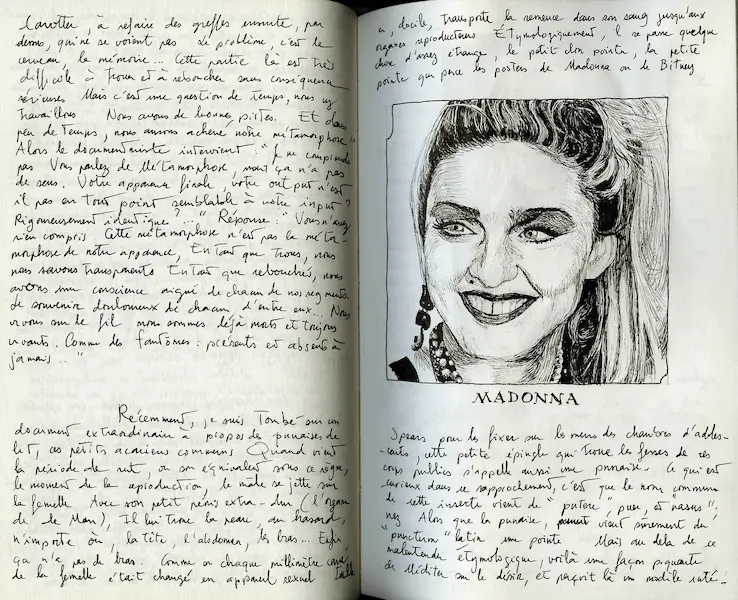 carotter, à refaire des greffes ensuite, par
dessus, qui ne se voient pas le problème, c'est le
cerveau, la mémoire... Cette partie là est très
difficile à trouer et à reboucher sans conséquences
sérieuses Mais c'est une question de temps, nous y
travaillons Nous avons de bonnes pistes. Et dans
peu de temps, nous aurons achevé notre métamorphose"
Alors le documentariste intervient : "Je ne comprends
pas Vous parlez de Métamorphose, mais ça n'a pas
de sens. Votre apparence finale, votre output n'est
il pas en tout point semblable à votre input?
Rigoureusement identique?..." Réponse: "Vous n'avez
rien compris Cette métamorphose n'est pas la méta-
morphose de notre apparence, En tant que trous, nous
nous savons transparents En tant que rebouchés, nous
avons une conscience aiguë de chacun de nos segments
le souvenir douloureux de chacun d'entre eux... Nous
vivons sur le fil nous sommes déjà morts et toujours
vivants. Comme des fantômes : présents et absents à
jamais..."
Récemment, je suis tombé sur un
document extraordinaire à propos des punaises de
lit, ces petits acariens communs Quand vient
la période de rut, ou son équivalent sous ce règne,
le moment de la reproduction, le mâle se jette sur
la femelle Avec son petit pénis extra-dur (l'organe
de Man), Il lui troue la peau, au hasard,
n'importe où, la tête, l'abdomen, les bras... Enfin
ça n'a pas de bras. Comme si chaque millimètre carré
de la femelle était changé en appareil sexuel
a, docile, transporte la semence dans son sang jusqu'aux
organes reproducteurs Étymologiquement, il se passe quelque
chose d'assez étrange, le petit clou pointu, la petite
pointe qui perce les posters de Madonna ou de Britney
MADONNA
Spears pour les fixer sur les murs des chambres d'adoles-
cents, cette petite épingle qui troue les fesses de ces
corps publics s'appelle aussi une punaise. Ce qui est
curieux dans ce rapprochement, c'est que le nom commun
de cette insecte vient de "putere", puer, et "nasus",
nez Alors que la punaise, vient sûrement du
"punctum" latin une pointe Mais au delà de ce
malentendu étymologique, voilà une façon piquante
de méditer sur le désir, et perçoit là un modèle inté-